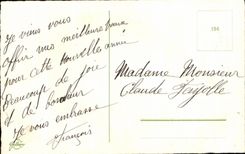 Je viens vous
offrir mes meilleurs vœux
pour cette nouvelle année
Beaucoup de joie
et de bonheur
Je vous embrasse
François
Madame Monsieur
Claude